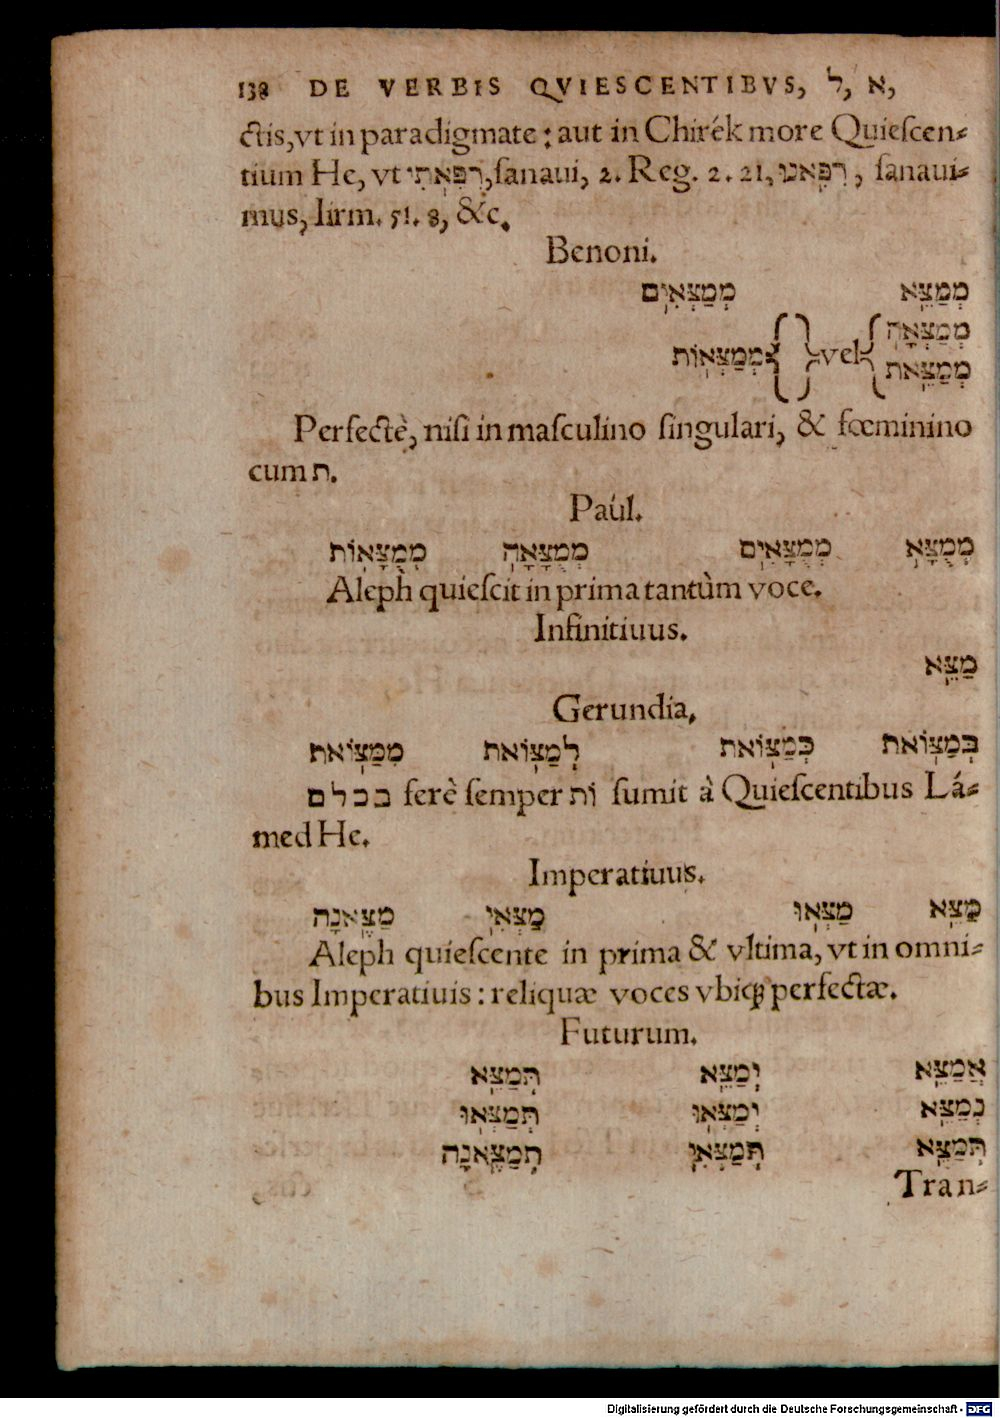 138 DE VERBIS QVIESCENTIBVS, ל, א,
ctis, vt in paradigmate : aut in Chirék more Quieſcen-
tium He, vt רִפִּאתִי, ſanaui, 2. Reg. 2. 21, רִפִּאנוּ, ſanaui-
mus, Iirm. 51. 8, &c.
Benoni.
מְמַצֵּא מְמַצְּאִים
מְמַצְּאָה
vel מְמַצְּאוֹת
מְמַצֵּאת
Perfectè, niſi in maſculino ſingulari, & fœminino
cum ת.
Paúl.
מְמֻצָּא מְמֻצָּאִים מְמֻצָּאָה מְמֻצָּאוֹת
Aleph quieſcit in prima tantùm voce.
Infinitiuus.
מַצֵּא
Gerundia,
בְּמַצּוֹאת כְּמַצּוֹאת לְמַצּוֹאת מִמַּצּוֹאת
בכלם ferè ſemper וֹת ſumit à Quieſcentibus Lá-
med He.
Imperatiuus.
מַצֵּא מַצְּאוּ מַצְּאִי מַצֶּאנָה
Aleph quieſcente in prima & vltima, vt in omni-
bus Imperatiuis : reliquæ voces vbiq; perfectæ.
Futurum.
אֲמַצֵּא יְמַצֵּא תְּמַצֵּא
נְמַצֵּא יְמַצְּאוּ תְּמַצְּאוּ
תְּמַצֵּא תְּמַצְּאִי תְּמַצֶּאנָה
Tran-
Digitalisierung gefördert durch die Deutsche Forschungsgemeinschaft - DFG